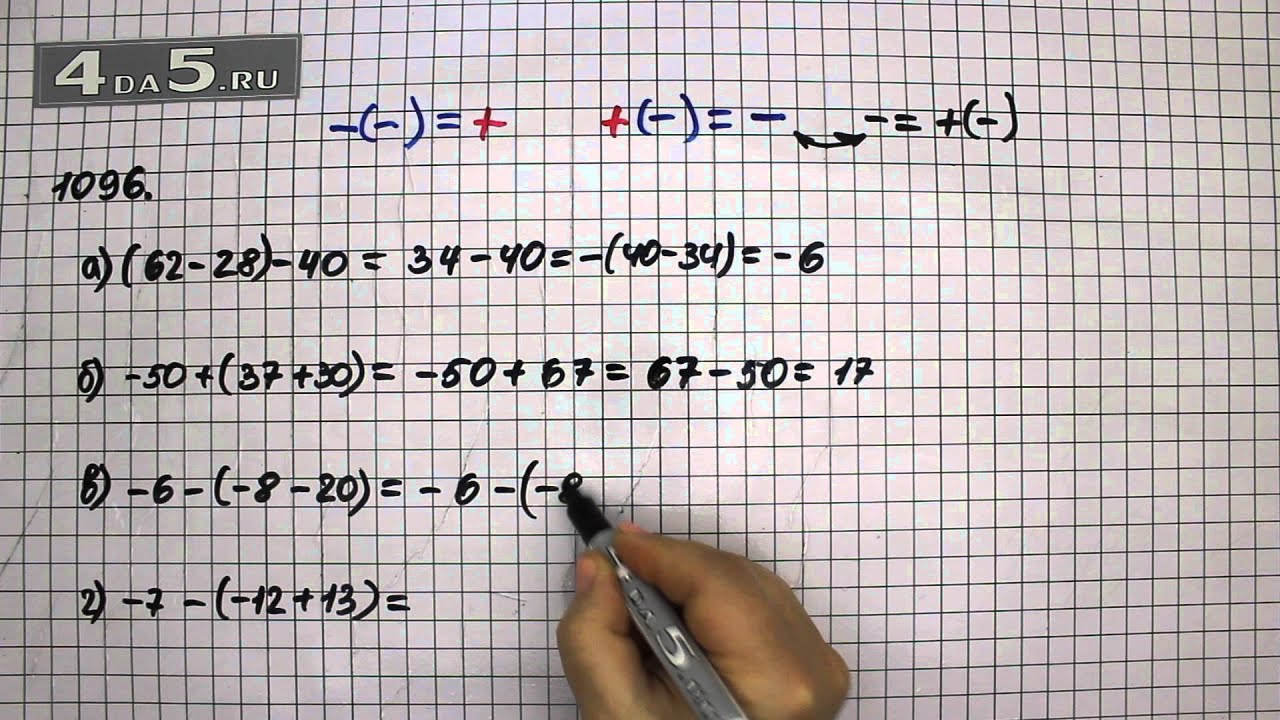 4DA5.RU
-(-) = + +(-) = - - = +(-)
1096.
а) (62-28)-40 = 34-40=-(40-34)= -6
б) -50+(37+30)= -50+67= 67-50= 17
в) -6-(-8-20)= -6-(-8
г) -7-(-12+13)=